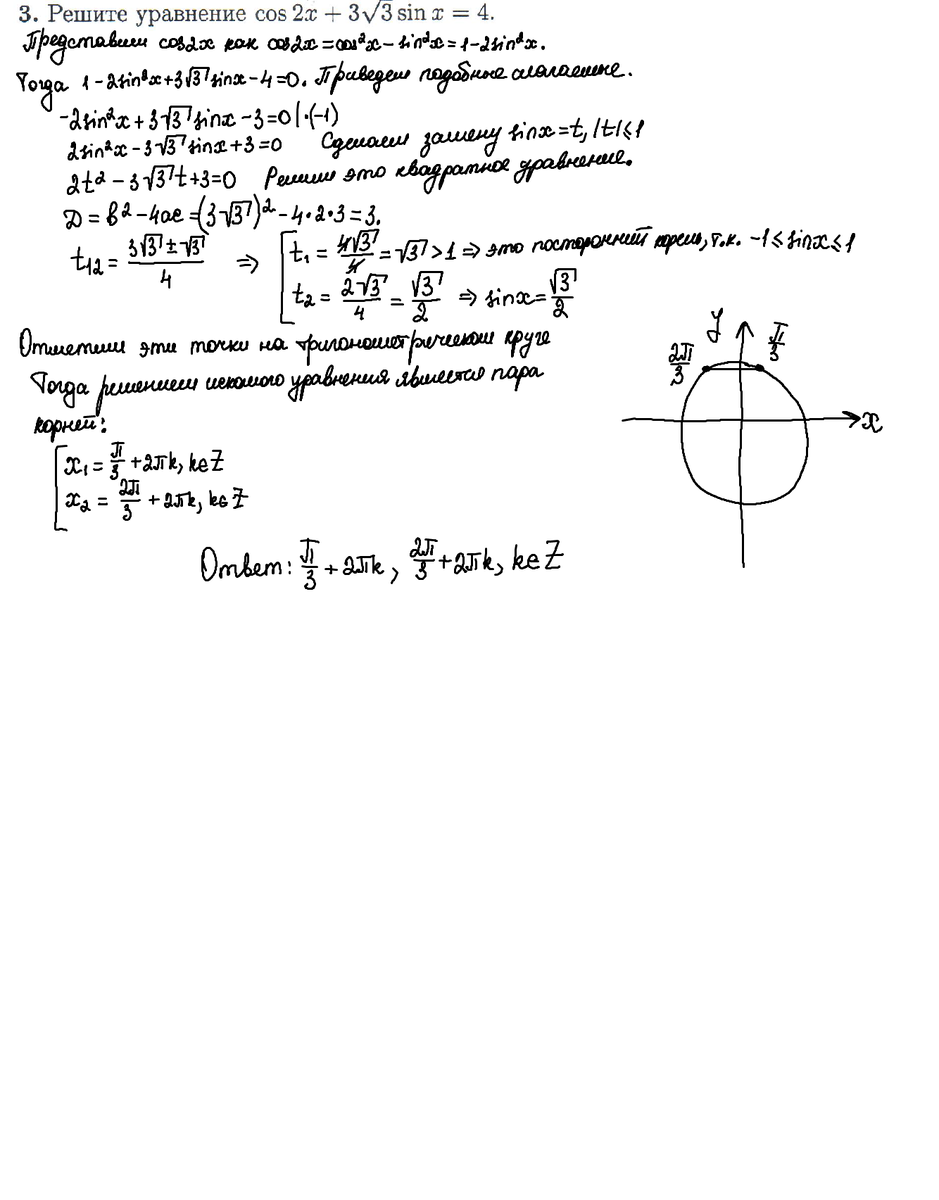 3. Решите уравнение cos 2x + 3√3 sin x = 4.
Представим cos2x как cos2x = cos²x − sin²x = 1 − 2sin²x.
Тогда 1 − 2sin²x + 3√3 sinx − 4 = 0. Приведем подобные слагаемые.
−2sin²x + 3√3 sinx − 3 = 0 |·(−1)
2sin²x − 3√3 sinx + 3 = 0 Сделаем замену sinx = t, |t| ≤ 1
2t² − 3√3t + 3 = 0 Решим это квадратное уравнение.
D = b² − 4ac = (3√3)² − 4·2·3 = 3.
t₁₂ = (3√3 ± √3)/4 ⇒ [ t₁ = 4√3/4 = √3 > 1 ⇒ это посторонний корень, т.к. −1 ≤ sinx ≤ 1
t₂ = 2√3/4 = √3/2 ⇒ sinx = √3/2
Отметим эти точки на тригонометрическом круге
y
2π/3 π/3
x
Тогда решением искомого уравнения является пара
корней:
[ x₁ = π/3 + 2πk, k∈Z
x₂ = 2π/3 + 2πk, k∈Z
Ответ: π/3 + 2πk, 2π/3 + 2πk, k∈Z